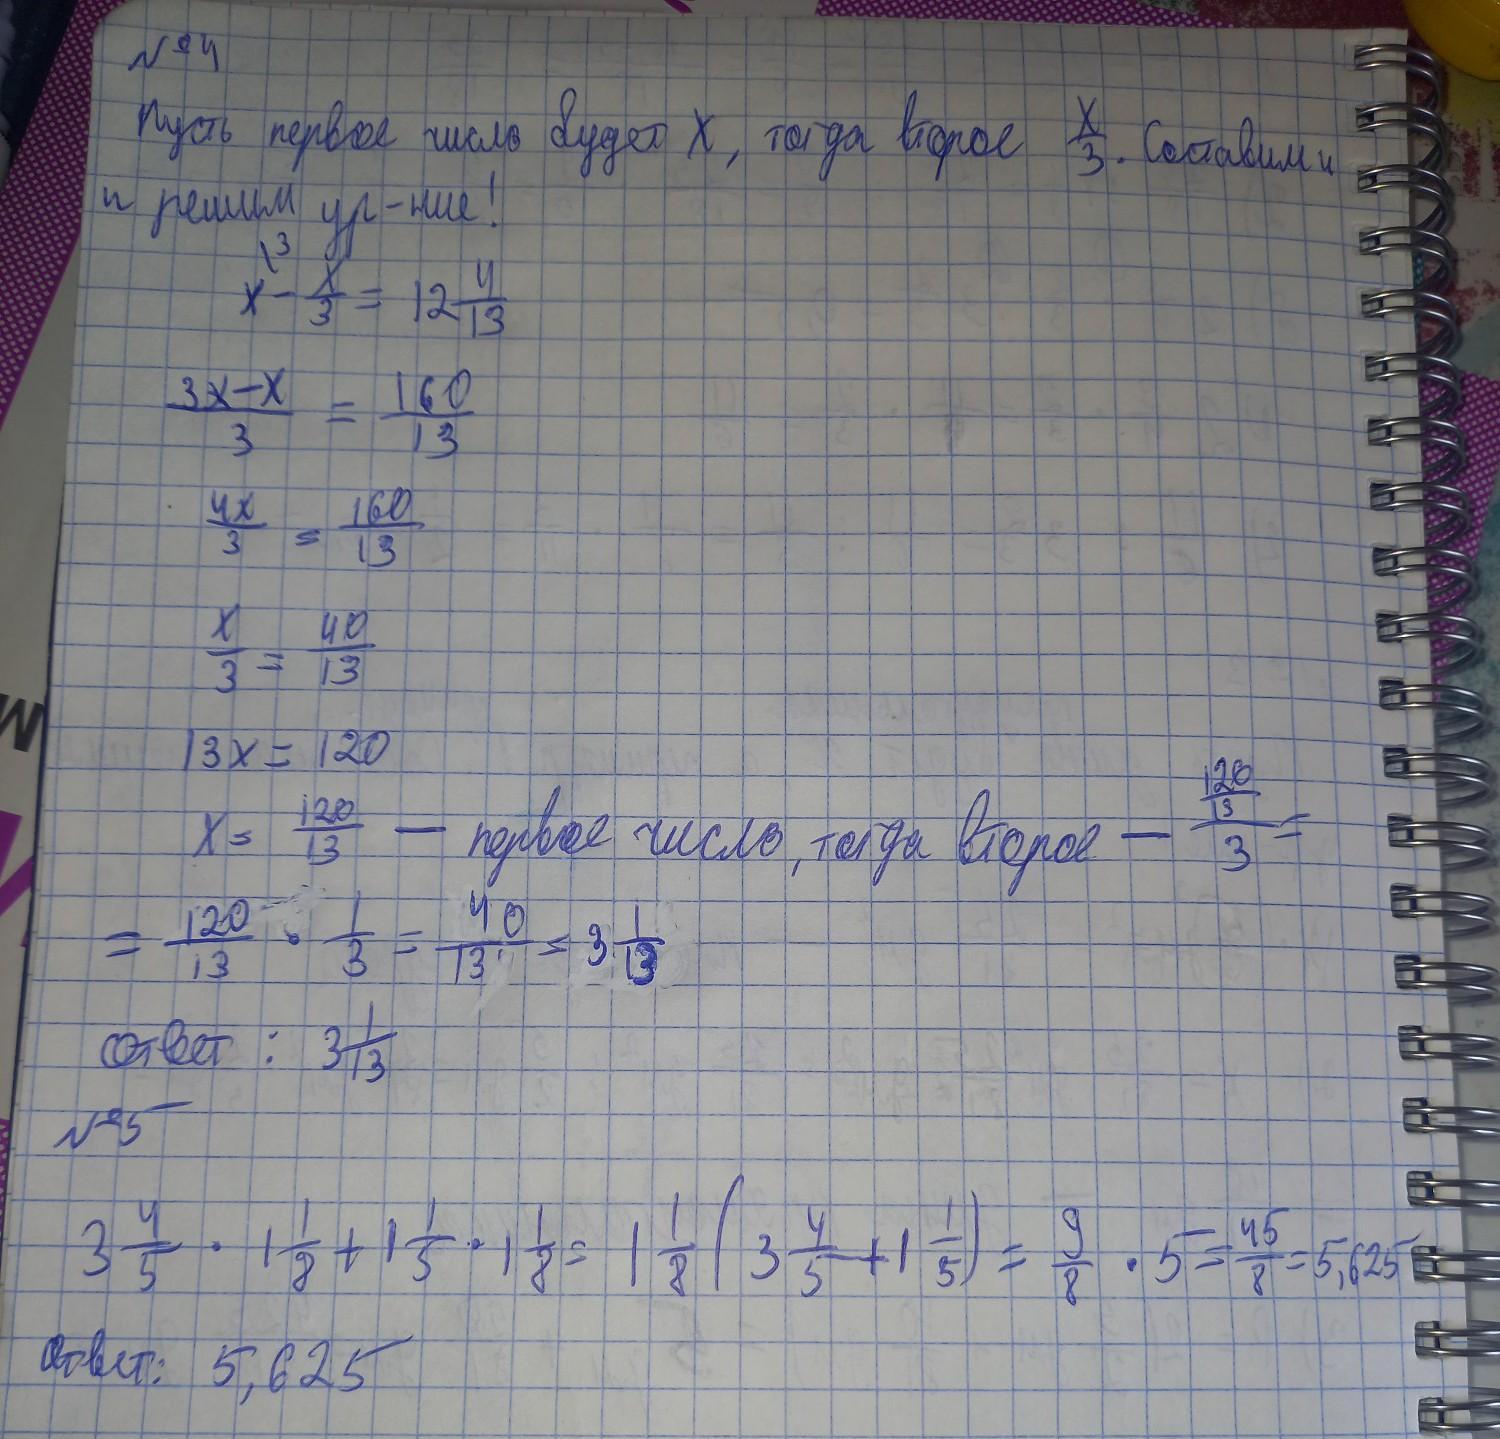 №4
Пусть первое число будет x, тогда второе x/3. Составим и
и решим ур-ние!
x\3 - x/3 = 12 4/13
3x-x/3 = 160/13
4x/3 = 160/13
x/3 = 40/13
13x = 120
x = 120/13 — первое число, тогда второе — 120/13/3 =
= 120/13 · 1/3 = 40/13 = 3 1/13
ответ: 3 1/13
№5
3 4/5 · 1 1/8 + 1 1/5 · 1 1/8 = 1 1/8 (3 4/5 + 1 1/5) = 9/8 · 5 = 45/8 = 5,625
ответ: 5,625
M